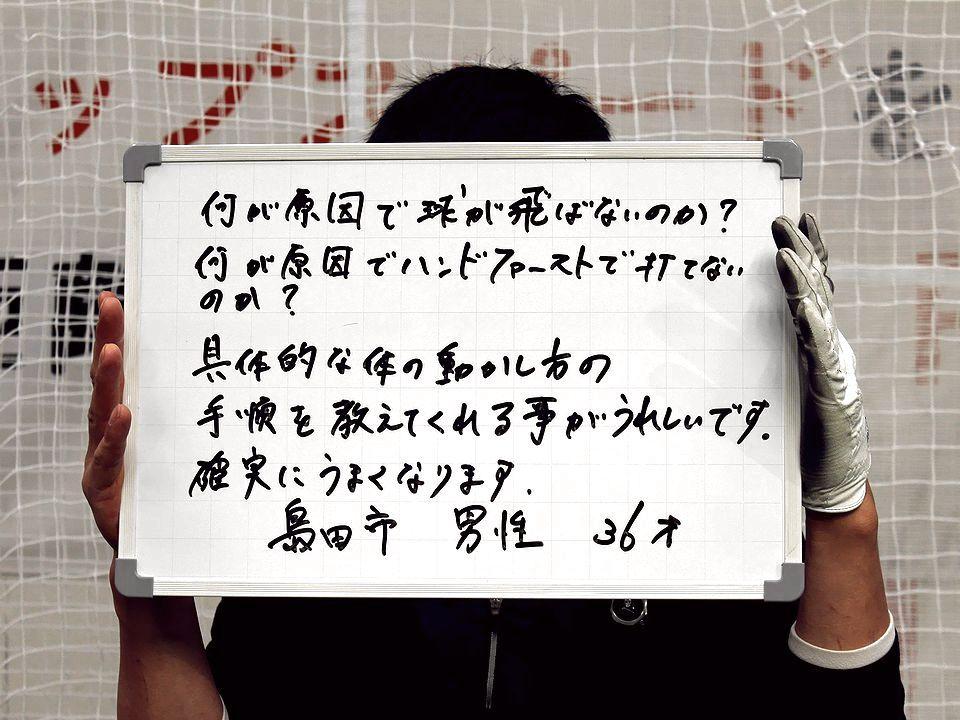 何が原因で球が飛ばないのか?
何が原因でハンドファーストで打てない
のか?
具体的な体の動かし方の
手順を教えてくれる事がうれしいです.
確実にうまくなります.
島田市 男性 36才